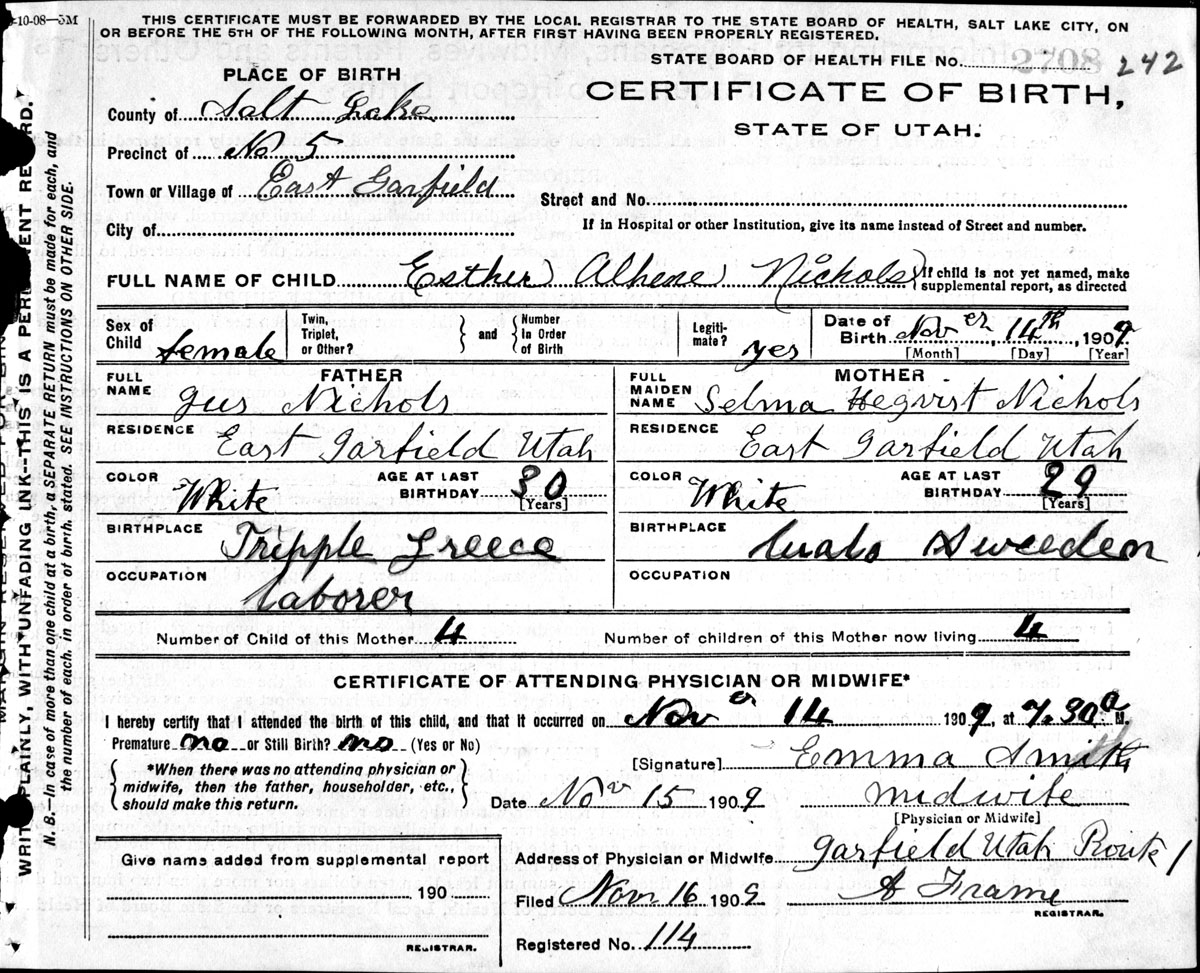 10-08—5M
THIS CERTIFICATE MUST BE FORWARDED BY THE LOCAL REGISTRAR TO THE STATE BOARD OF HEALTH, SALT LAKE CITY, ON
OR BEFORE THE 5TH OF THE FOLLOWING MONTH, AFTER FIRST HAVING BEEN PROPERLY REGISTERED.
STATE BOARD OF HEALTH FILE No. 2708 242
PLACE OF BIRTH
CERTIFICATE OF BIRTH,
STATE OF UTAH.
County of Salt Lake
Precinct of No 5
Town or Village of East Garfield
Street and No.
City of
If in Hospital or other Institution, give its name instead of Street and number.
FULL NAME OF CHILD Esther Alhene Nichols } If child is not yet named, make supplemental report, as directed
Sex of Child female
Twin, Triplet, or Other? } and { Number In Order of Birth
Legiti-mate? yes
Date of Birth Nov er, 14th, 1909
[Month] [Day] [Year]
FATHER
FULL NAME Gus Nichols
RESIDENCE East Garfield Utah
COLOR White AGE AT LAST BIRTHDAY 30 [Years]
BIRTHPLACE Tripple Greece
OCCUPATION laborer
MOTHER
FULL MAIDEN NAME Selma Hegvist Nichols
RESIDENCE East Garfield Utah
COLOR White AGE AT LAST BIRTHDAY 29 [Years]
BIRTHPLACE Sweeden
OCCUPATION
Number of Child of this Mother 4 Number of children of this Mother now living 4
CERTIFICATE OF ATTENDING PHYSICIAN OR MIDWIFE*
I hereby certify that I attended the birth of this child, and that it occurred on Nov er 14 1909, at 7.30 a M.
Premature no or Still Birth? no (Yes or No)
*When there was no attending physician or
midwife, then the father, householder, etc.,
should make this return.
[Signature] Emma Smith
Date Nov 15 1909 midwife
[Physician or Midwife]
Give name added from supplemental report
190
REGISTRAR.
Address of Physician or Midwife Garfield Utah Route 1
Filed Nov 16 1909 A Frame
REGISTRAR.
Registered No. 114
WRITE PLAINLY, WITH UNFADING INK--THIS IS A PERMANENT RECORD.
N. B.—In case of more than one child at a birth, a SEPARATE RETURN must be made for each, and
the number of each. in order of birth. stated. SEE INSTRUCTIONS ON OTHER SIDE.